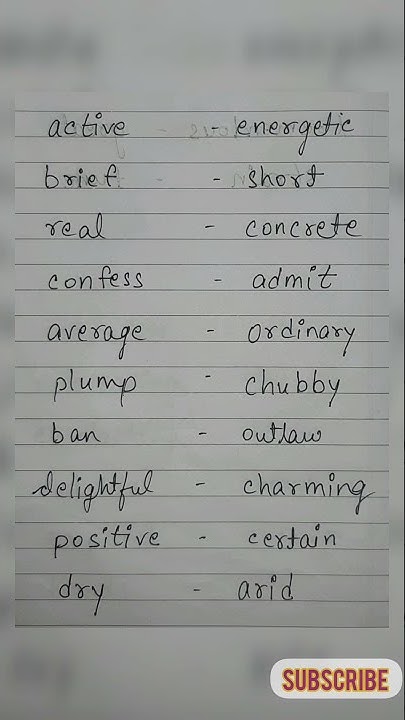 active - energetic
brief - short
real - concrete
confess - admit
average - ordinary
plump - chubby
ban - outlaw
delightful - charming
positive - certain
dry - arid
SUBSCRIBE